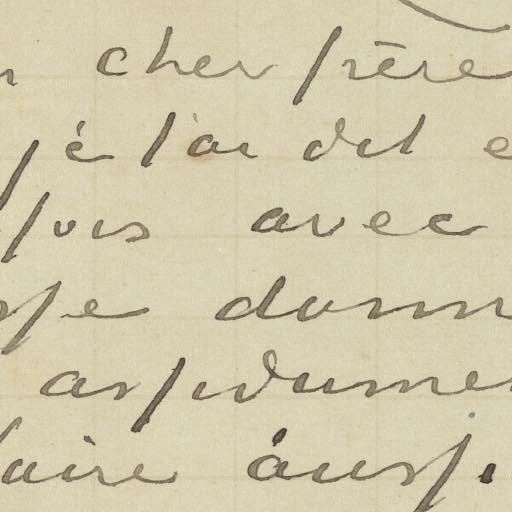 n cher frère
je l'ai dit e
fois avec
sse donn
assidume
faire aussi